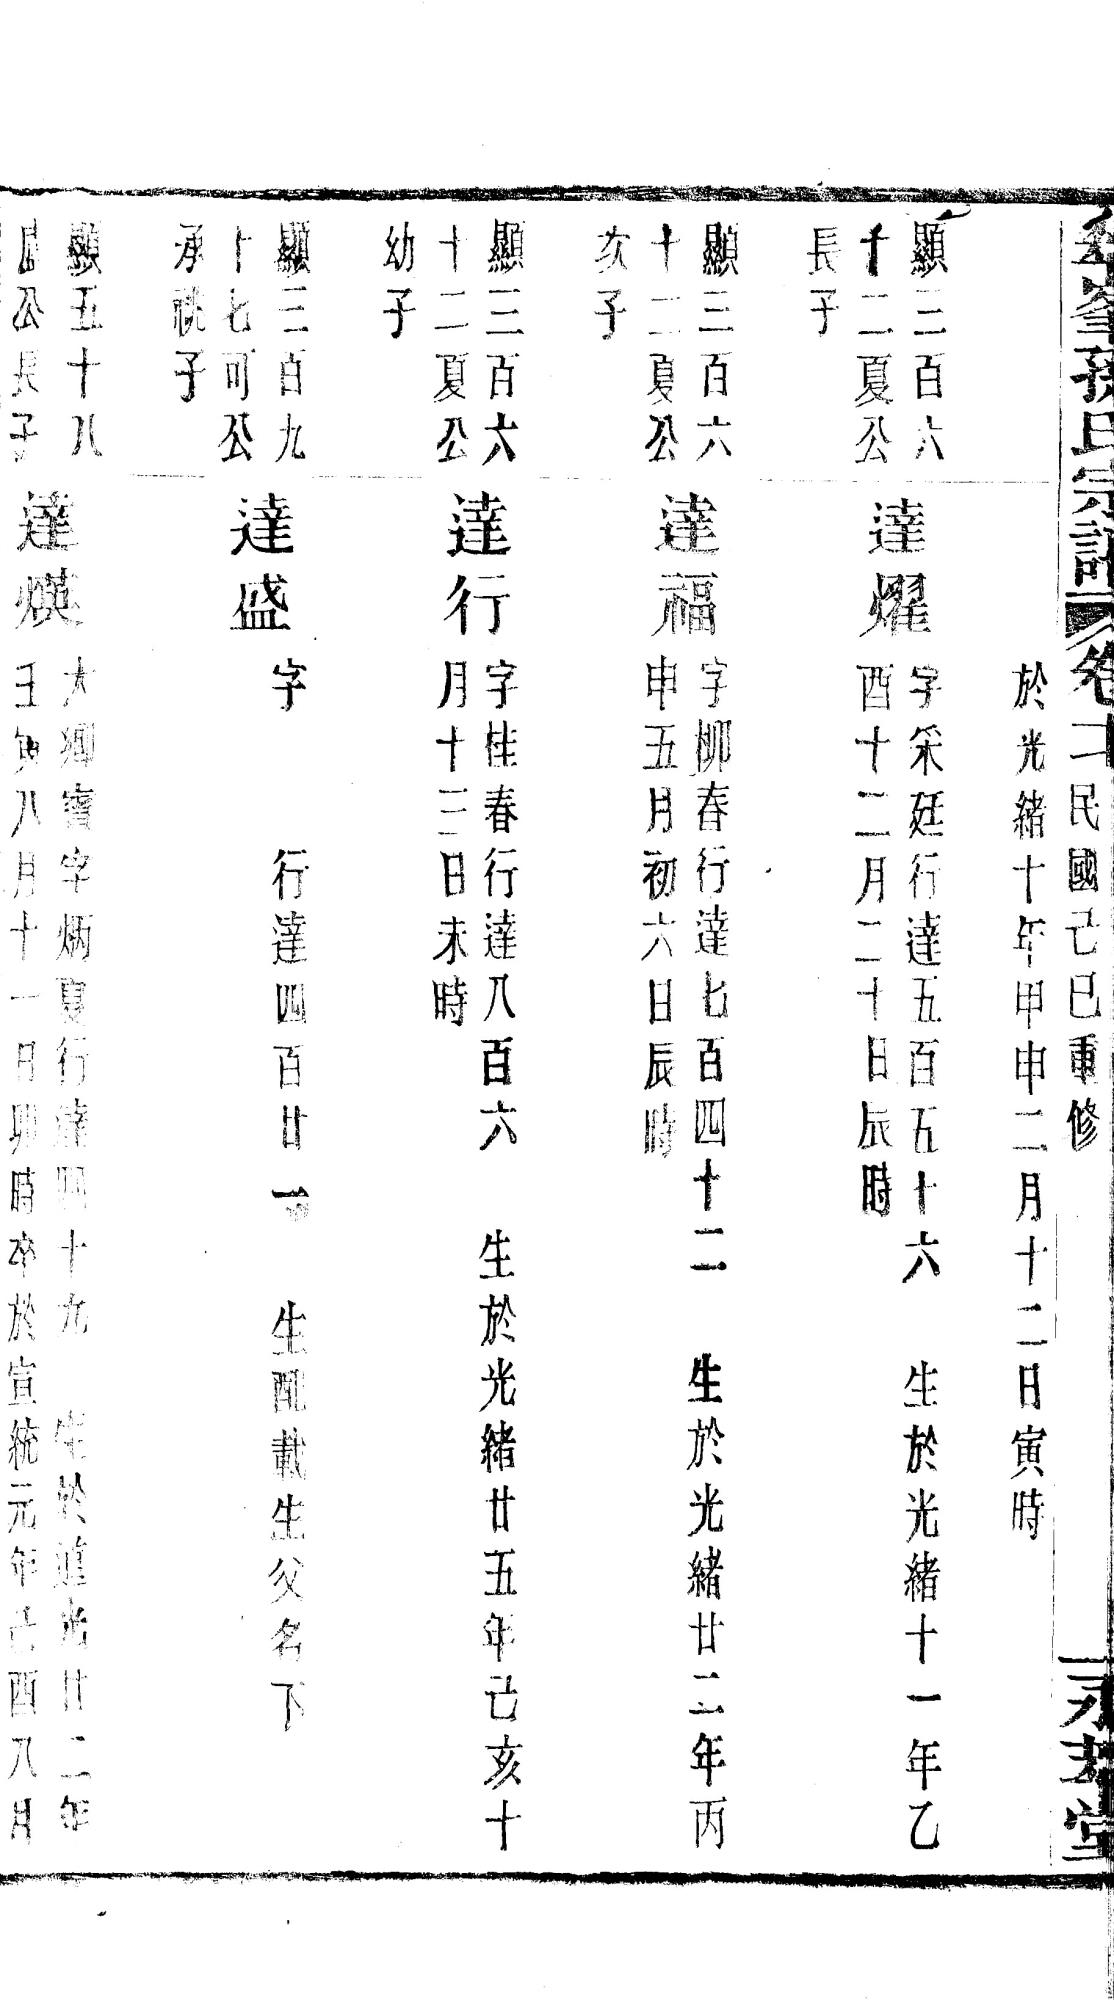 峯孫氏宗譜
卷十二民國己巳重修
堂
於光緒十年甲申二月十二日寅時
顯三百六
十二夏公
長子
達燿
字采廷行達五百五十六 生於光緒十一年乙
酉十二月二十日辰時
顯三百六
十二夏公
次子
達福
字柳春行達七百四十二 生於光緒廿二年丙
申五月初六日辰時
顯三百六
十二夏公
幼子
達行
字桂春行達八百六 生於光緒廿五年己亥十
月十三日未時
顯三百九
十七可公
承祧子
達盛
字 行達四百廿一 生配載生父名下
顯五十八
公長子
達煐
大鄉賓字炳夏行達四十九 生於道光廿二年
壬寅八月十一日卯時卒於宣統元年己酉八月